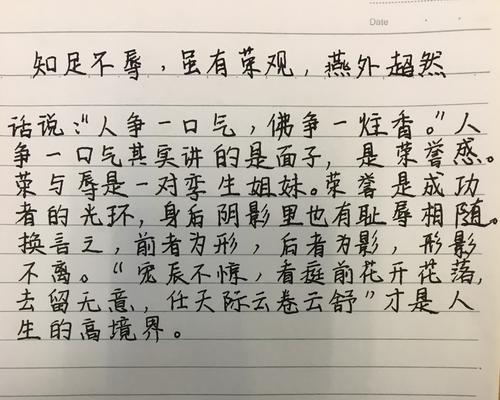 Date
知足不辱，虽有荣观，燕外超然
话说："人争一口气，佛争一炷香。"人
争一口气其实讲的是面子，是荣誉感。
荣与辱是一对孪生姐妹。荣誉是成功
者的光环，身后阴影里也有耻辱相随。
换言之，前者为形，后者为影，形影
不离。"宠辰不惊，看庭前花开花落，
去留无意，任天际云卷云舒"才是人
生的高境界。